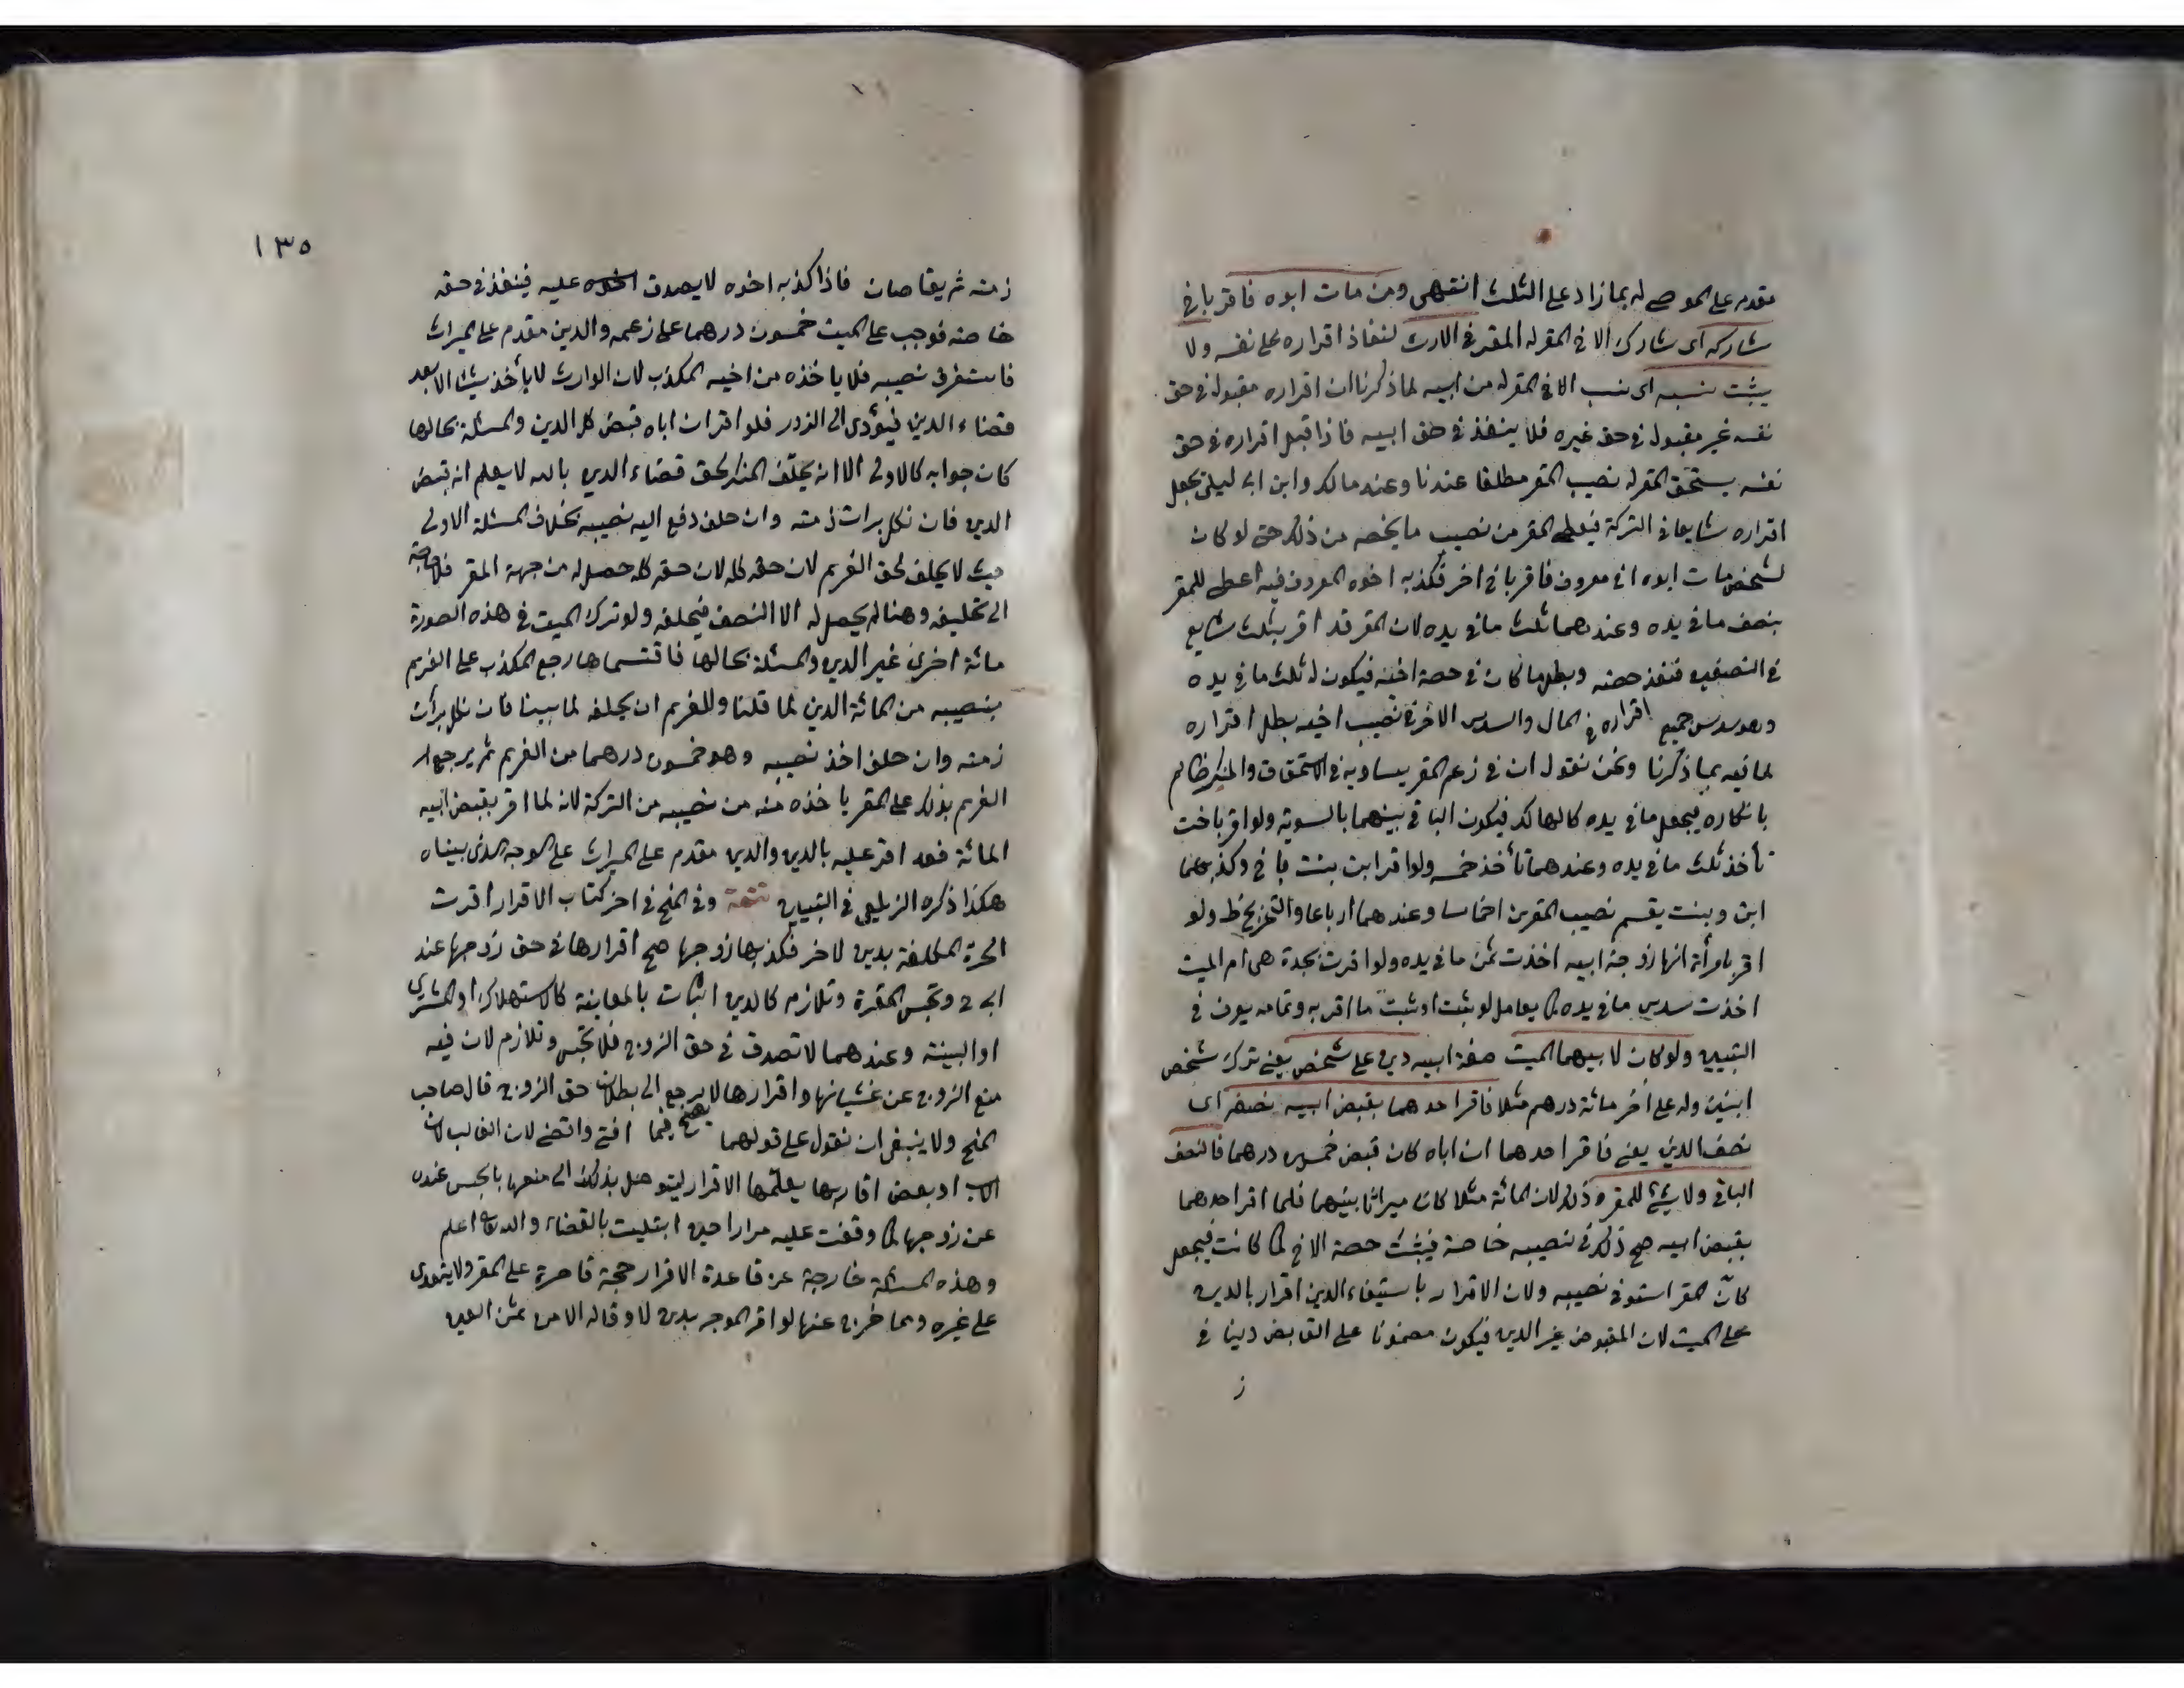 مقدم على الموصى له بما زاد على الثلث انتهى ومن مات ابوه فاقر باخ
شاركه اى شارك الاخ المقر له المقر فى الارث لنفاذ اقراره على نفسه ولا
يثبت نسبه اى نسب الاخ المقر له من ابيه لما ذكرنا ان اقراره مقبول فى حق
نفسه غير مقبول فى حق غيره فلا ينفذ فى حق ابيه فاذا قبل اقراره فى حق
نفسه يستحق المقر له نصيب المقر مطلقا عندنا وعند مالك وابن ابى ليلى يجعل
اقراره شايعا فى التركة فيعطى المقر من نصيب ما يخصه من ذلك حتى لو كان
لشخص مات ابوه اخ معروف فاقر باخ اخر فكذبه اخوه المعروف فيه اعطى للمقر
بنصف ما فى يده وعندهما ثلث ما فى يده لان المقر قد اقر بثلث شايع
فى النصفين فنفذ حصته وبطل ما كان فى حصة اخيه فيكون له ثلث ما فى يده
وهو سدس جميع اقراره فى المال والسدس الاخر فى نصيب اخيه بطل اقراره
لما فيه بما ذكرنا ونحن نقول ان فى زعم المقر يساويه فى الاستحقاق والمنكر ظالم
بانكاره فيجعل ما فى يده كالهالك فيكون الباقى بينهما بالسوية ولو اقر باخت
تأخذ ثلث ما فى يده وعندهما تأخذ خمسه ولو اقر ابن بنت باخ وكذبهما
ابن وبنت يقسم نصيب المقرين اخماسا وعندهما ارباعا والتخريج ظ ولو
اقر بامرأة انها زوجة ابيه اخذت ثمن ما فى يده ولو اقرت بجدة هى ام الميت
اخذت سدس ما فى يده كما يعامل لو ثبت او ثبت ما اقر به وتمامه يعرف فى
التبيين ولو كان لابيهما الميت صفة ابيه دين على شخص يعنى ترك شخص
ابنين وله على اخر مائة درهم مثلا فاقر احدهما بقبض ابيه نصفه اى
نصف الدين يعنى فاقر احدهما ان اباه كان قبض خمسين درهما فالنصف
الباقى ولا شئ للمقر ه ذلك لان المائة مثلا كان ميراثا بينهما فلما اقر احدهما
بقبض ابيه صح ذلك فى نصيبه خاصة فيثبت حصة الاخ كما كانت فيجعل
كأن المقر استوفى نصيبه ولان الاقرار باستيفاء الدين اقرار بالدين
على الميت لان المقبوض غير الدين فيكون مضمونا على القابض دينا فى
ذ
١٣٥
ذمته ثم يقاصان فاذا كذبه اخوه لا يصدق اخوه عليه فينفذ فى حقه
خاصته فوجب على الميت خمسون درهما على زعمه والدين مقدم على الميراث
فاستغرق نصيبه فلا ياخذه من اخيه المكذب لان الوارث لا يأخذ شيئا الا بعد
قضاء الدين فيؤدى الى الدور فلو اقر ان اباه قبض كل الدين والمسئلة بحالها
كان جوابه كالاولى الا انه يحلف المنكر لحق قضاء الدين بالله لا يعلم انه قبض
الدين فان نكل برات ذمته وان حلف دفع اليه نصيبه بخلاف المسئلة الاولى
حيث لا يحلف لحق الغريم لان حقه كله لان حقه كله حصل له من جهة المقر فلا حاجة
الى تحليفه وهنا لم يحصل له الا النصف فيحلفه ولو ترك الميت فى هذه الصورة
مائة اخرى غير الدين والمسئلة بحالها فاقتسماها رجع المكذب على الغريم
بنصيبه من المائة الدين لما قلنا وللغريم ان يحلفه لما بينا فان نكل برأت
ذمته وان حلف اخذ نصيبه وهو خمسون درهما من الغريم ثم يرجع
الغريم بذلك على المقر ياخذه منه من نصيبه من التركة لانه لما اقر بقبض ابيه
المائة فقد اقر عليه بالدين والدين مقدم على الميراث على الوجه الذى بيناه
هكذا ذكره الزيلعى فى التبيين تتمة وفى المنح فى اخر كتاب الاقرار اقرت
الحرة المكلفة بدين لاخر فكذبها زوجها صح اقرارها فى حق زوجها عند
ابى ح وتحبس المقرة وتلازم كالدين الثابت بالمعاينة كالاستهلاك او الشرى
او البينة وعندهما لا تصدق فى حق الزوج فلا تحبس وتلازم لان فيه
منع الزوج عن غشيانها واقرارها لا يرجع الى بطلان حق الزوج قال صاحب
المنح ولا ينبغى ان نقول على قولهما افتى واقضى لان الغالب ان
الاب او بعض اقاربها يعلمها الاقرار ليتوصل بذلك الى منعها بالحبس عنده
عن زوجها كما وقفت عليه مرارا حين ابتليت بالقضاء والله اعلم
وهذه المسئلة خارجة عن قاعدة الاقرار حجة قاصرة على المقر ولا يتعدى
على غيره ومما خرج عنها لو اقر الموجر بدين لا وفاء له الا من ثمن العين